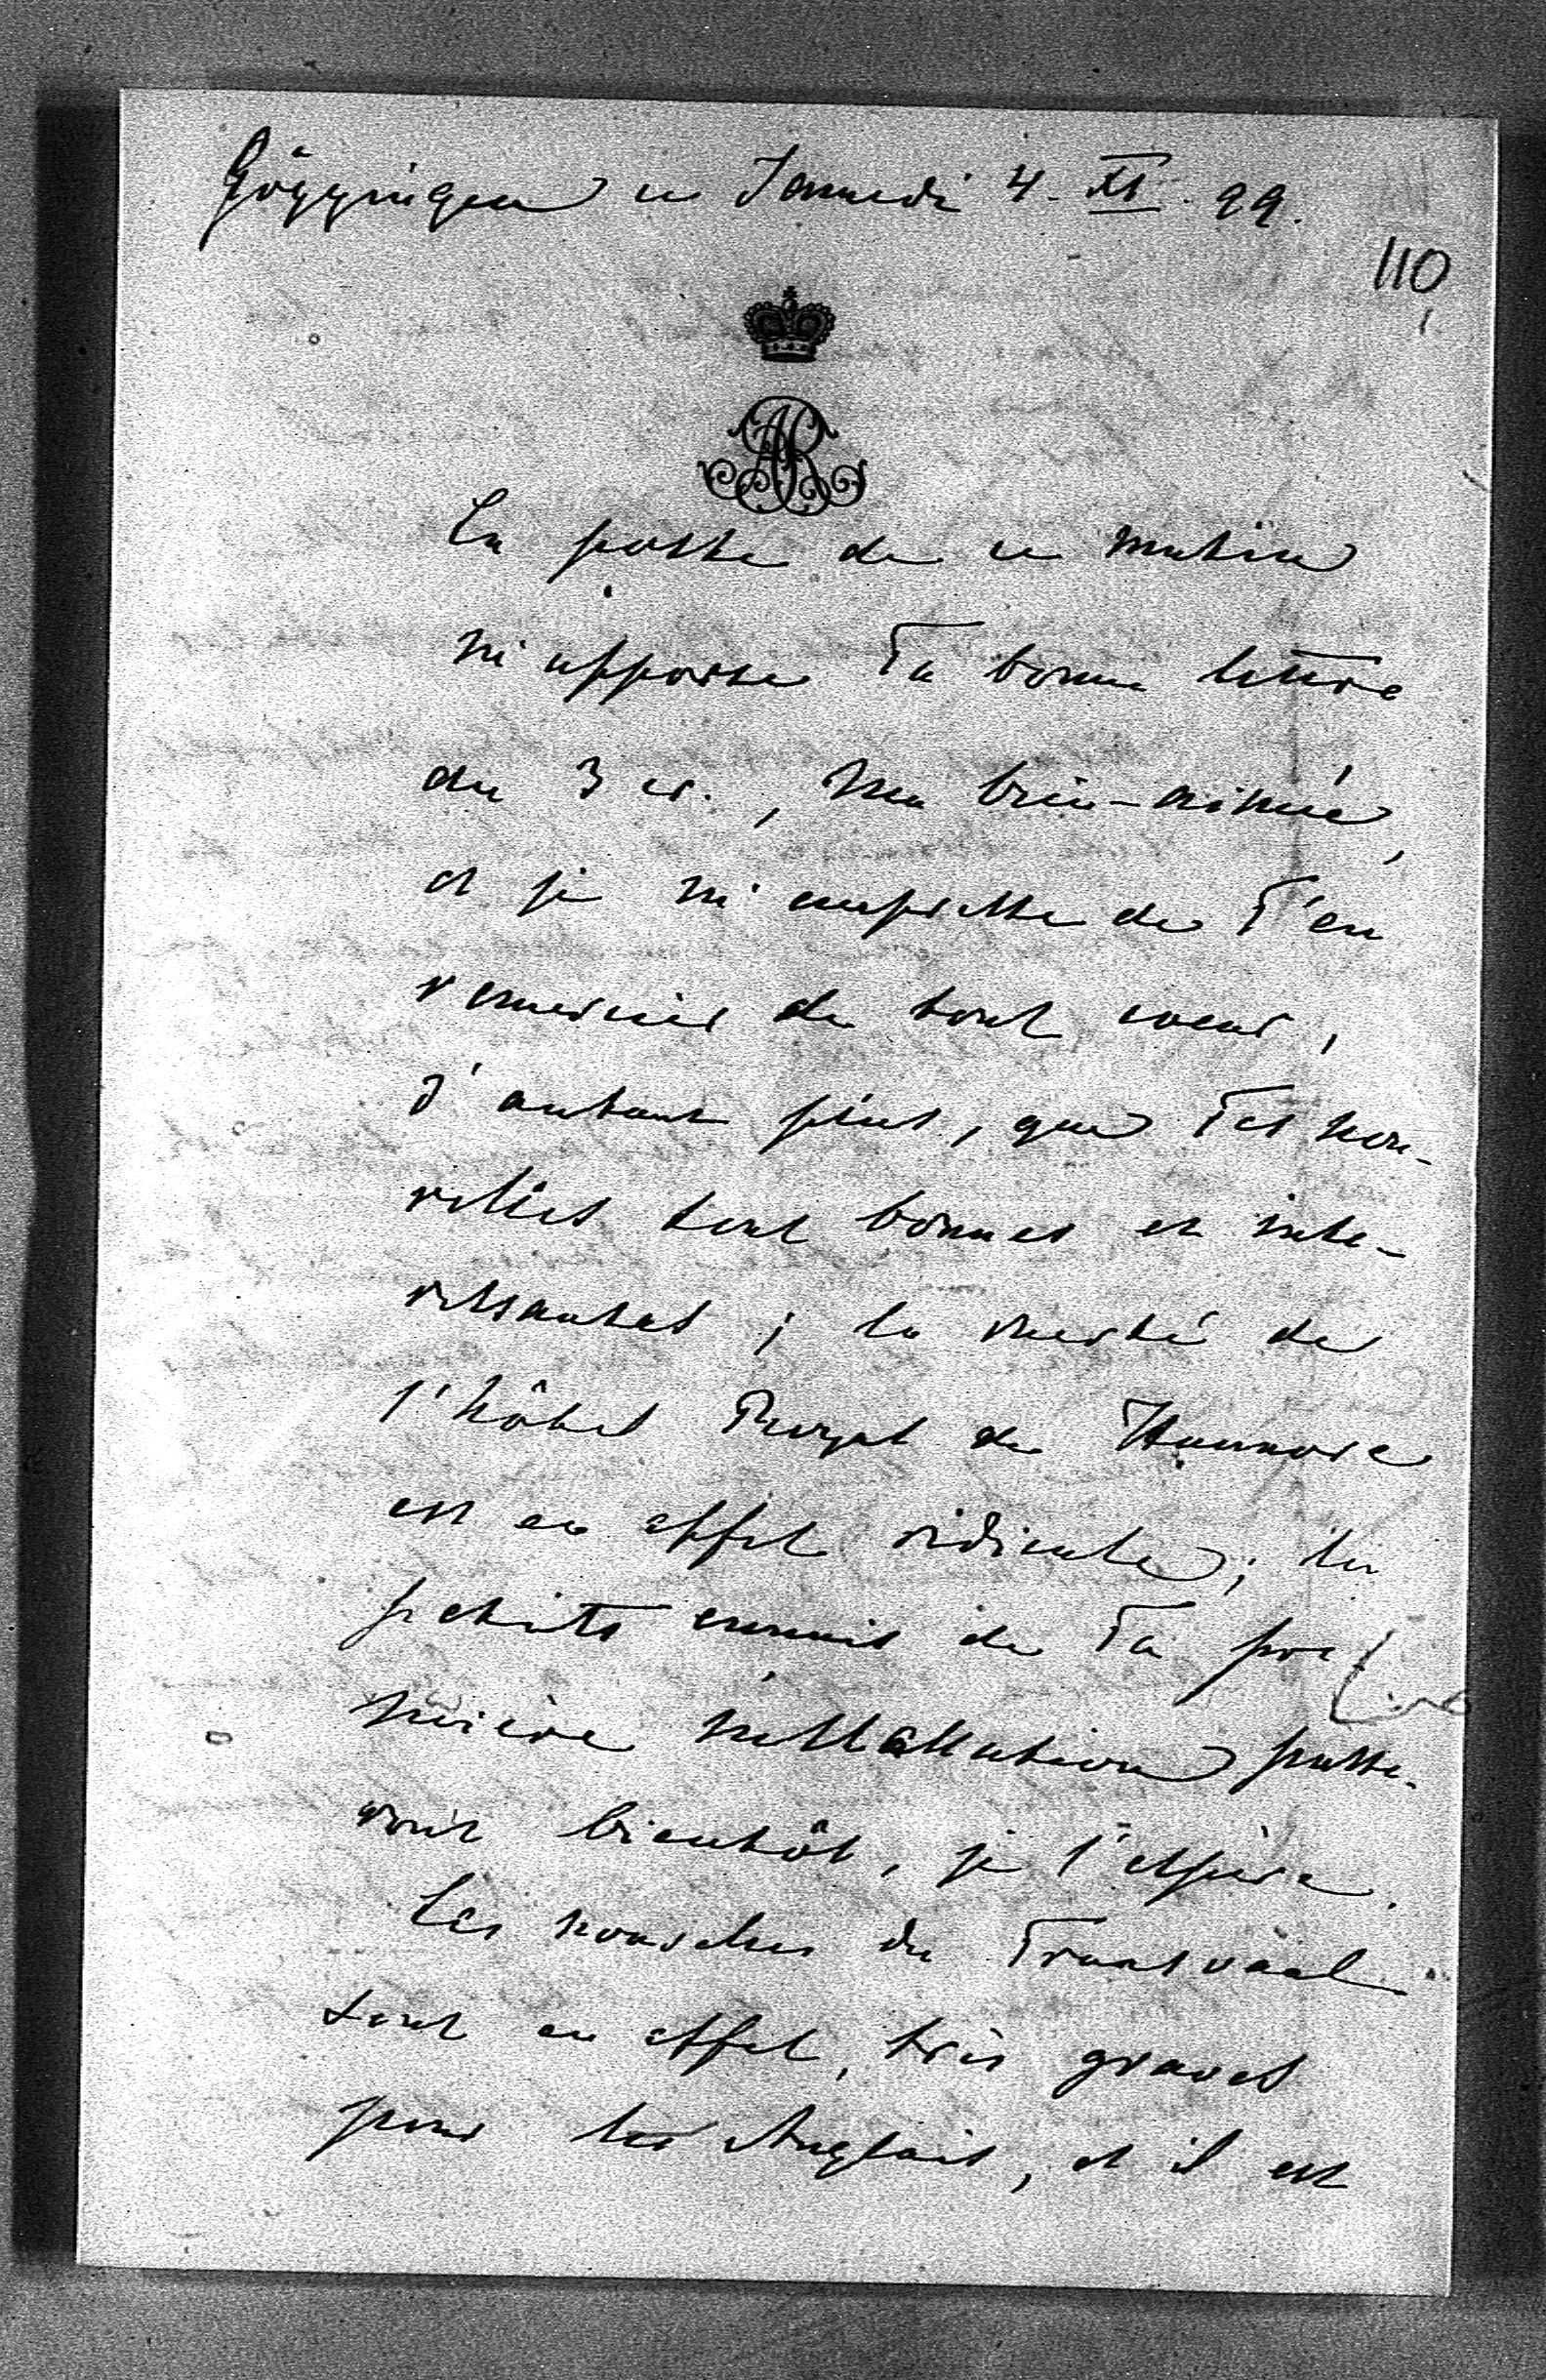 Göggingen ce Samedi 4. XI. 99.
110
AR
La poste de ce matin
m'apporte Ta bonne lettre
du 3 cr., Ma bien-aimée,
et je m'empresse de T'en
remercier de tout coeur,
d'autant plus, que Tes nou-
velles sont bonnes et inte-
ressantes; la de
l'hôtel Royal de Hannovre
est en effet ridicule; les
petits ennuis de Ta pre
mière installation passe-
ront bientôt, je l'espère.
Les nouvelles du Transvaal
sont en effet, très graves
pour les Anglais, et il est